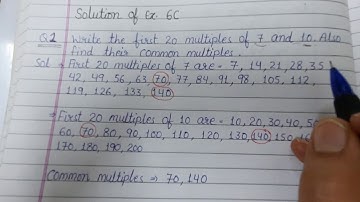 Solution of Ex. 6C
Q.1 Write the first 20 multiples of 7 and 10. Also
find their common multiples.
Sol ⇒ First 20 multiples of 7 are = 7, 14, 21, 28, 35,
42, 49, 56, 63, 70, 77, 84, 91, 98, 105, 112,
119, 126, 133, 140
⇒ First 20 multiples of 10 are = 10, 20, 30, 40, 50
60, 70, 80, 90, 100, 110, 120, 130, 140, 150, 
170, 180, 190, 200
Common multiples ⇒ 70, 140